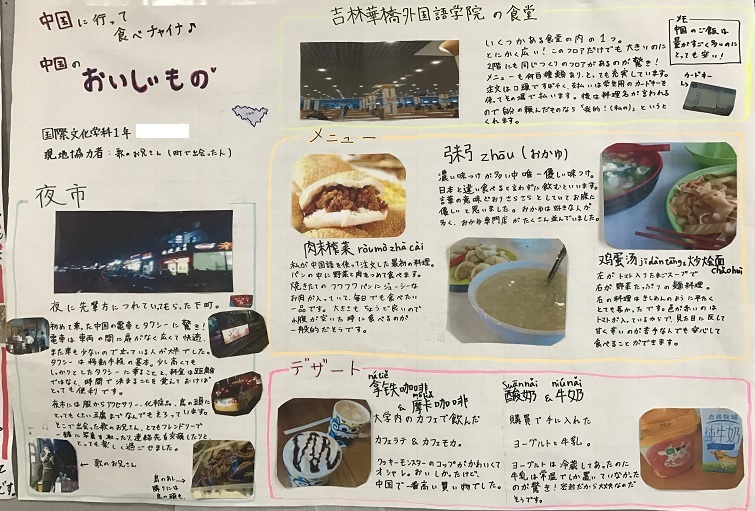 中国に行って
食べチャイナ♪
中国の
おいしいもの
国際文化学科1年
現地協力者：歌のお兄さん（町で出会った人）
吉林華橋外国語学院の食堂
いくつかある食堂の内の1つ。
とにかく広い！このフロアだけでも大きいのに
2階にも同じつくりのフロアがあるのが驚き！
メニューも何百種類あり、とても充実しています。
注文は口頭ですばやく、支払いは学生用のカードキーを
使ってその場で払います。後は料理名が言われる
ので自分の頼んだものなら「我的！(私の)」というと
くれます。
メモ
中国のご飯は
量がすごく多いのに
とても安い！
カードキー
メニュー
肉末榨菜 ròumò zhà cài
私が中国語を使って注文した最初の料理。
パンの中に野菜と肉をつめて食べます。
焼きたてのフワフワパンにジューシーな
お肉が入っていて、毎日でも食べたい
一品です。大きさもちょうど良いので
小腹が空いた時に食べるのが
一般的だそうです。
粥 zhōu (おかゆ)
濃い味つけが多い中唯一優しい味つけ。
日本と違い食べると言わずに飲むといいます。
言葉の意味どおりさらさらとしていてお腹に
優しいと思いました。おかゆは好きな人が
多く、おかゆ専門店がたくさん並んでいました。
鸡蛋汤 jīdàntāng 大炒烩面 chǎohuì
左がトマト入りたまごスープで
右が野菜たっぷりの麺料理。
右の料理はきしめんのように平たく
とても長かったです。色が赤いのは
トマトが入っているからで、見た目に反して
甘く辛いのが苦手な人でも安心して
食べることができます。
夜市
夜に先輩方につれていてもらった下町。
初めて乗った中国の電車とタクシーに驚き！
電車は車両の間に扉がなく広くて快適
タクシーは移動手段の基本。少し高くても
しっかりとしたタクシーに乗ることと、料金は距離
ではなく、時間で決まることを覚えておけば
とても便利です。
夜市には服からアクセサリー、化粧品、鳥の頭に
とてもくさい豆腐までなんでもそろっています。
そこで出会った歌のお兄さん、とてもフレンドリーで
一緒に写真を取ったり、連絡先を交換したりと
とっても楽しく過ごせました。
← 歌のお兄さん
鳥のあし
隣りには
鳥の頭も。
デザート
nátiě
拿铁咖啡
& 摩卡咖啡
大学内のカフェで飲んだ
カフェラテ＆カフェモカ。
クッキーモンスターのコップがかわいくて
オシャレ。おいしかったけど、
中国で一番高い買い物でした。
suānnǎi niúnǎi
酸奶 & 牛奶
購買で手に入れた
ヨーグルトと牛乳。
ヨーグルトは冷蔵してあったのに
牛乳は常温でしか置いていなかった
のが驚き！密封だから大丈夫なのだ
そうです。
纯牛奶